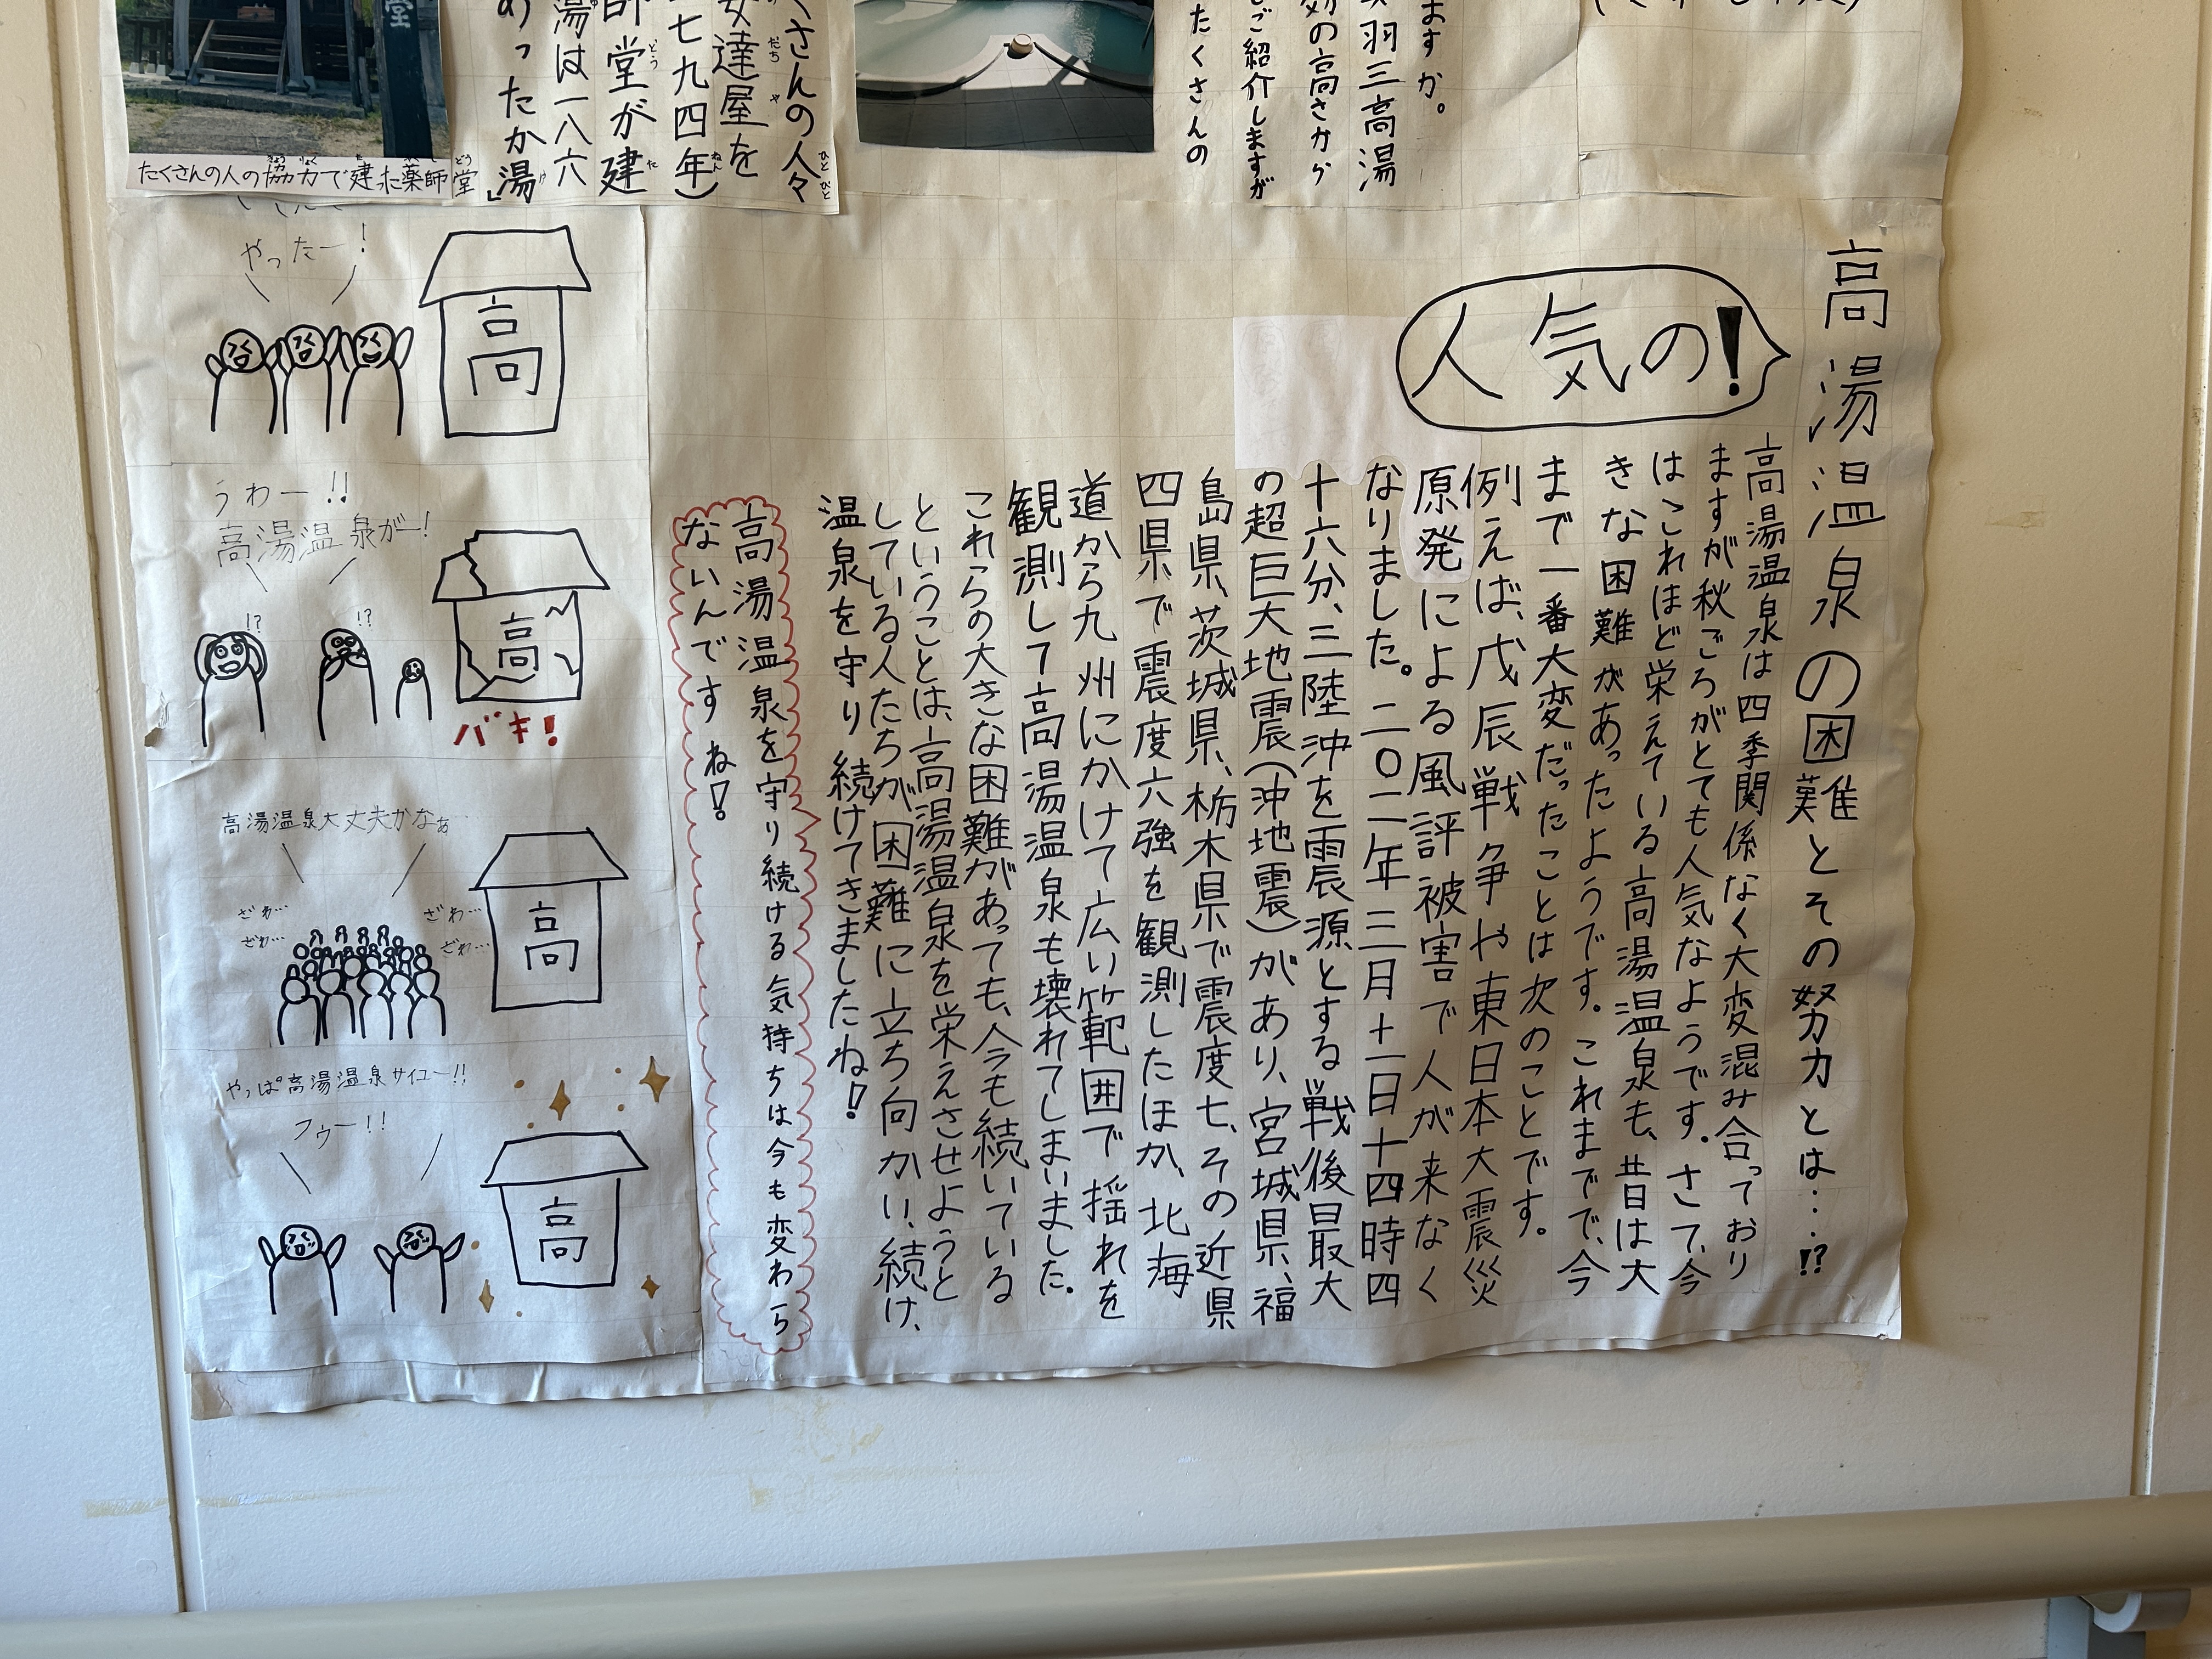 ますか。
羽三高湯
の高さから
ご紹介しますが
たくさんの
さんの人々
達屋を
七九四年）
師堂が建
湯は一八六
あったか湯」
たくさんの人の協力で建った薬師堂
人気の！
高湯温泉の困難とその努力とは…!?
高湯温泉は四季関係なく大変混み合っており
ますが秋ごろがとても人気なようです。さて、今
はこれほど栄えている高湯温泉も、昔は大
きな困難があったようです。これまでで、今
まで一番大変だったことは次のことです。
例えば、戊辰戦争や東日本大震災
原発による風評被害で人が来なく
なりました。二〇二年三月十一日十四時四
十六分、三陸沖を震源とする戦後最大
の超巨大地震（沖地震）があり、宮城県、福
島県、茨城県、栃木県で震度七、その近県
四県で震度六強を観測したほか、北海
道から九州にかけて広い範囲で揺れを
観測して高湯温泉も壊れてしまいました。
これらの大きな困難があっても、今も続いている
ということは、高湯温泉を栄えさせようと
している人たちが困難に立ち向かい、続け、
温泉を守り続けてきましたね！
高湯温泉を守り続ける気持ちは今も変わら
ないんですね！
やったー！
高
うわー!!
高湯温泉がー！
!?
!?
高
バキ！
高湯温泉大丈夫かなぁ…
ざわ…
ざわ…
ざわ…
ざわ…
高
やっぱ高湯温泉サイコー!!
フゥー!!
高